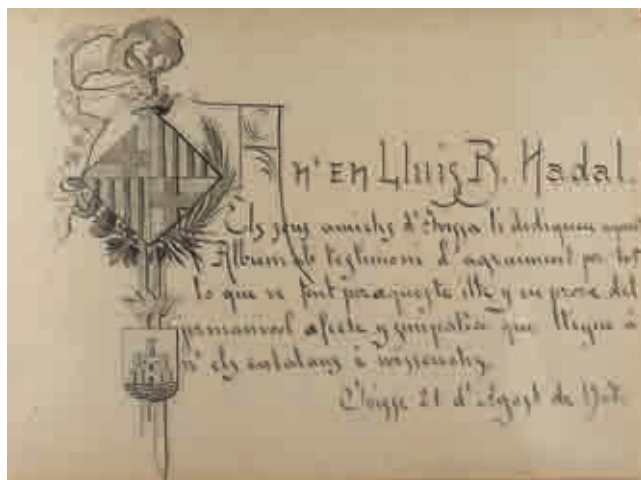 A n'En Lluis R. Nadal.
Els seus amichs d'Ivissa li dediquen aquest
Album de testimoni d'agraiment per tot
lo que ve fent per aqueste ille y en prova del
jermanivol afecte y simpatia que lligue á
n'els catalans é
Ivisse 21 d'Agost de